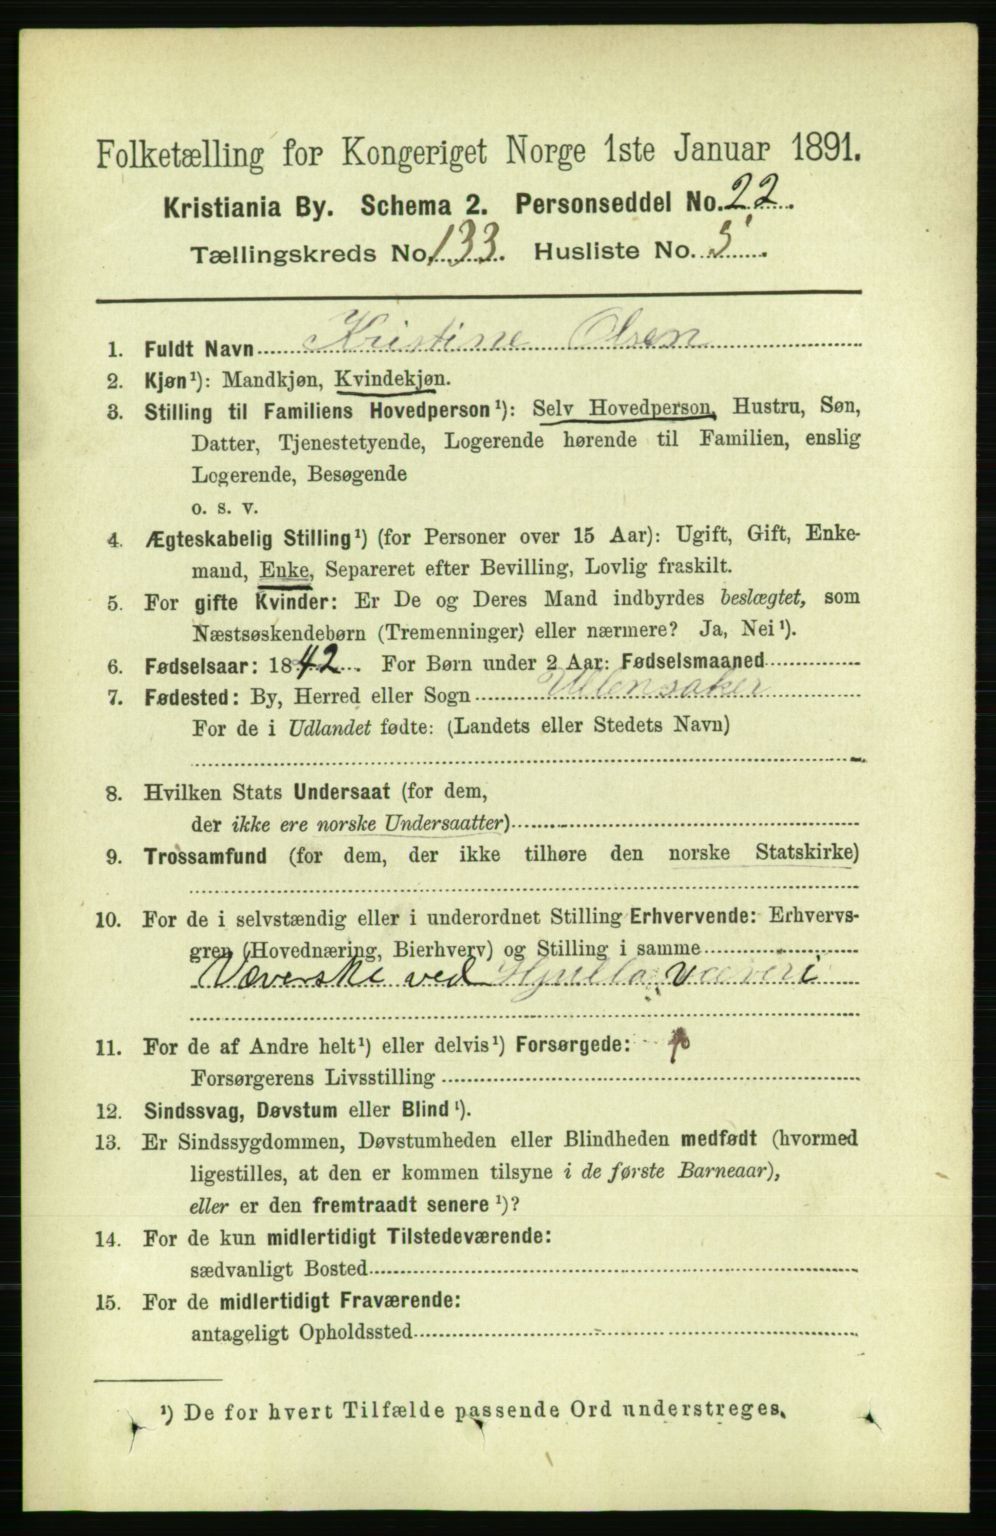 Folketælling for Kongeriget Norge 1ste Januar 1891.
Kristiania By. Schema 2. Personseddel No. 22.
Tællingskreds No. 133. Husliste No. 5.
1. Fuldt Navn Kristine Olsen
2. Kjøn¹): Mandkjøn, Kvindekjøn.
3. Stilling til Familiens Hovedperson¹): Selv Hovedperson, Hustru, Søn,
Datter, Tjenestetyende, Logerende hørende til Familien, enslig
Logerende, Besøgende
o. s. v.
4. Ægteskabelig Stilling¹) (for Personer over 15 Aar): Ugift, Gift, Enke-
mand, Enke, Separeret efter Bevilling, Lovlig fraskilt.
5. For gifte Kvinder: Er De og Deres Mand indbyrdes beslægtet, som
Næstsøskendebørn (Tremenninger) eller nærmere? Ja, Nei¹).
6. Fødselsaar: 1842. For Børn under 2 Aar: Fødselsmaaned
7. Fødested: By, Herred eller Sogn Ullensaker
For de i Udlandet fødte: (Landets eller Stedets Navn)
8. Hvilken Stats Undersaat (for dem,
der ikke ere norske Undersaatter)
9. Trossamfund (for dem, der ikke tilhøre den norske Statskirke)
10. For de i selvstændig eller i underordnet Stilling Erhvervende: Erhvervs-
gren (Hovednæring, Bierhverv) og Stilling i samme
Væverske ved Hjula væveri
11. For de af Andre helt¹) eller delvis¹) Forsørgede:
Forsørgerens Livsstilling
12. Sindssvag, Døvstum eller Blind¹).
13. Er Sindssygdommen, Døvstumheden eller Blindheden medfødt (hvormed
ligestilles, at den er kommen tilsyne i de første Barneaar),
eller er den fremtraadt senere¹)?
14. For de kun midlertidigt Tilstedeværende:
sædvanligt Bosted
15. For de midlertidigt Fraværende:
antageligt Opholdssted
¹) De for hvert Tilfælde passende Ord understreges.